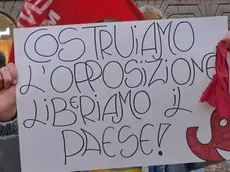 COSTRUIAMO
L'OPPOSIZIONE
LIBERIAMO IL
PAESE!